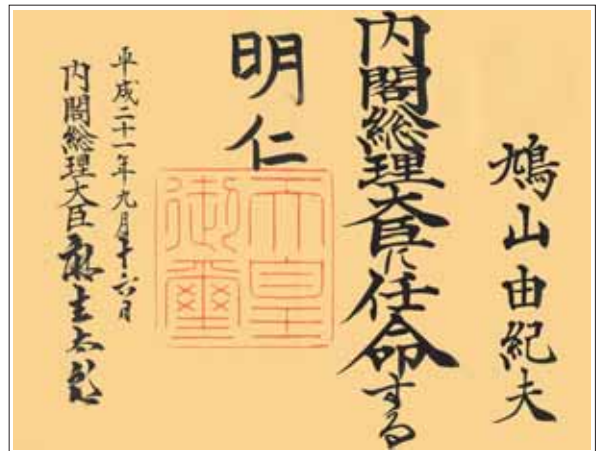 鳩山由紀夫
内閣総理大臣に任命する
明仁
天皇
御璽
平成二十一年九月十六日
内閣総理大臣 麻生太郎